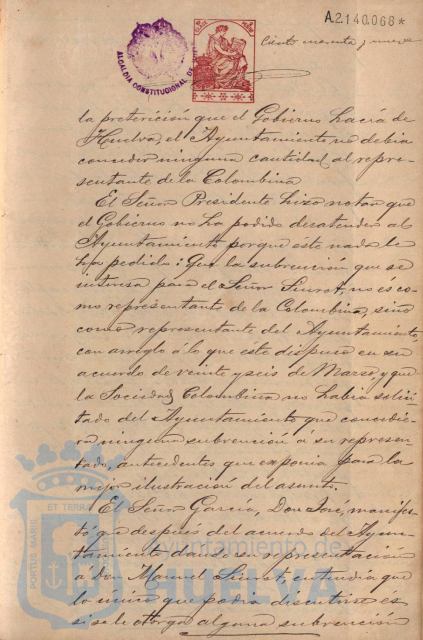 A.2.140.068*
ALCALDIA CONSTITUCIONAL DE
Ciento noventa y nueve
la preterición que el Gobierno hacía de
Huelva, el Ayuntamiento no debia
conceder ninguna cantidad al repre-
sentante de la Colombina
El Señor Presidente hizo notar que
el Gobierno no ha podido desatender al
Ayuntamiento porque este nada le
ha pedido: Que la subvención que se
interesa para el Señor Siurot, no es co
mo representante de la Colombina, sino
como representante del Ayuntamiento,
con arreglo á lo que este dispuso en su
acuerdo de veinte y seis de Marzo y que
la Sociedad Colombina no habia solici
tado del Ayuntamiento que concedie
ra ninguna subvención a su represen-
tado, antecedentes que exponia para la
mejor ilustración del asunto.
El Señor García, Don José, manifes
tó que después del acuerdo del Ayun-
tamiento dando su representación
á Don Manuel Siurot, entendia que
lo único que podia discutirse es
si se le otorga alguna subvención
PORTUS MARIS ET TERRAE
Ayuntamiento de
HUELVA